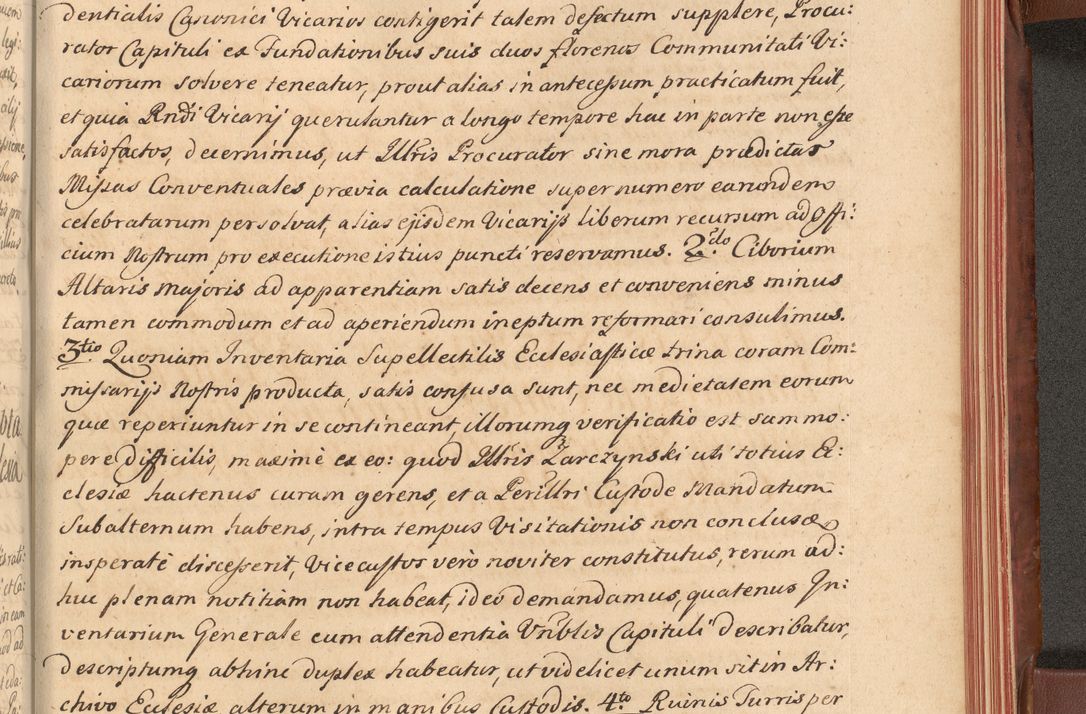 dentialis Canonici Vicarios contigerit talem defectum supplere, Procu:
rator Capituli ex Fundationibus suis duos florenos Communitati Vi:
cariorum solvere teneatur, prout alias in antecessum practicatum fuit,
et quia Rndi Vicarij querulantur a longo tempore hac in parte non esse
satisfactos, decernimus, ut Illtris Procurator sine mora prædictas
Missas Conventuales prævia calculatione super numero earundem
celebratarum persolvat, alias ejsdem Vicarijs liberum recursum ad Offi:
cium Nostrum pro executione istius puncti reservamus. 2do. Ciborium
Altaris majoris ad apparentiam satis decens et conveniens minus
tamen commodum et ad aperiendum ineptum reformari consulimus.
3tio. Quoniam Inventaria Supellectilis Ecclesiasticæ trina coram Com:
missarijs Nostris producta, satis confusa sunt, nec medietatem eorum
quæ reperiuntur in se contineant, illorumq verificatio est summo:
pere difficilis, maximè ex eo: quod Illtris Zarczynski uti totius Ec:
clesiæ hactenus curam gerens, et a Perilltri Custode Mandatum
Subalternum habens, intra tempus Visitationis non conclusæ
insperatè discesserit, Vicecustos verò noviter constitutus, rerum ad:
huc plenam notitiam non habeat, ideo demandamus, quatenus In:
ventarium Generale cum attendentia Vnblis Capituli describatur,
descriptumq abhinc duplex habeatur, ut videlicet unum sit in Ar:
chivo Ecclesiæ alterum in manibus Custodis. 4to. Ruinis Turris per